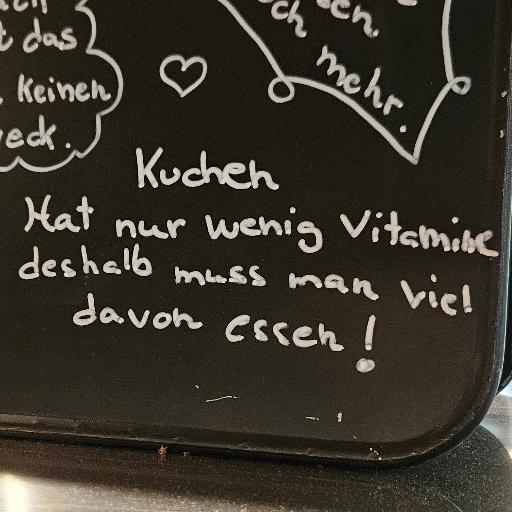 das
keinen
mehr.
Kuchen
Hat nur wenig Vitamine
deshalb muss man viel
davon essen!